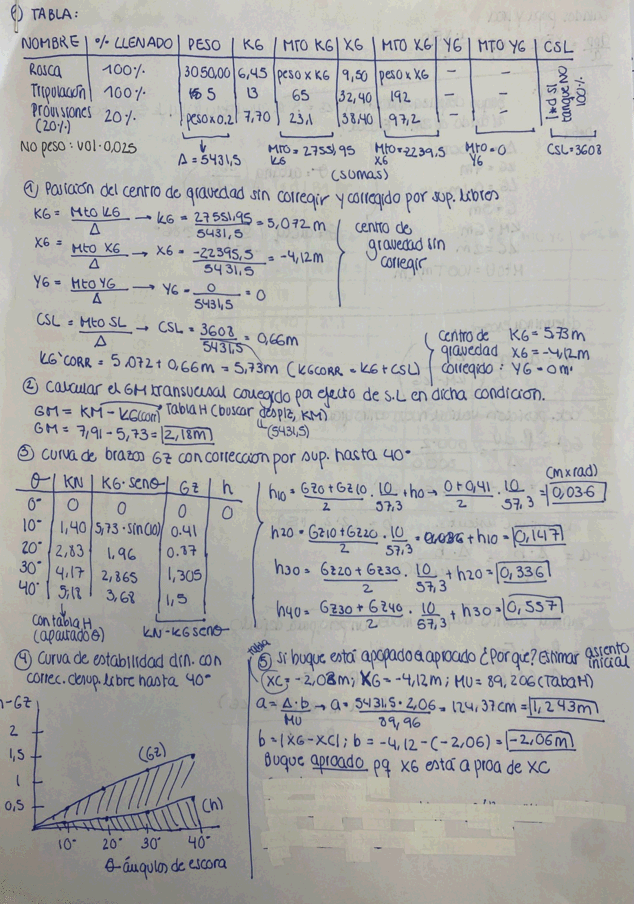 ① TABLA:
NOMBRE | % LLENADO | PESO | KG | MTO KG | XG | MTO XG | YG | MTO YG | CSL
Rosca | 100% | 3050,00 | 6,45 | peso x KG | 9,50 | peso x XG | - | -
Tripulación | 100% | 5 | 13 | 65 | 32,40 | 192 | - | -
Provisiones (20%) | 20% | peso x 0.2 | 7,70 | 23,1 | 38,40 | 97,2 | - | -
tanque NO 100%
NO peso: vol·0,025
Δ = 5431,5
MTO KG = 27551,95
MTO XG = -22395,5
MTO YG = 0
CSL = 3608
(sumas)
① Posición del centro de gravedad sin corregir y corregido por sup. libres
KG = Mto KG / Δ → KG = 27551,95 / 5431,5 = 5,072 m
XG = Mto XG / Δ → XG = -22395,5 / 5431,5 = -4,12m
YG = Mto YG / Δ → YG = 0 / 5431,5 = 0
centro de gravedad sin corregir
CSL = Mto SL / Δ → CSL = 3608 / 5431,5 = 0,66m
KG'CORR = 5,072 + 0,66m = 5,73m (KGCORR = KG + CSL)
centro de gravedad corregido: KG = 5,73m
XG = -4,12m
YG = 0m
② Calcular el GM transversal corregido por efecto de S.L en dicha condición.
GM = KM - KG(corr) Tabla H (buscar desplz, KM)
GM = 7,91 - 5,73 = 2,18m (5431,5)
③ Curva de brazos GZ con corrección por sup. hasta 40°
θ | KN | KG·senθ | GZ | h
0° | 0 | 0 | 0 | 0
10° | 1,40 | 5,73·sin(10) | 0.41
20° | 2,83 | 1,96 | 0.87
30° | 4,17 | 2,865 | 1,305
40° | 5,18 | 3,68 | 1,5
con tabla H (apartado θ)
KN - KG senθ
(m x rad)
h10 = GZ0 + GZ10 / 2 · 10 / 57,3 + h0 → 0 + 0,41 / 2 · 10 / 57,3 = 0,036
h20 = GZ10 + GZ20 / 2 · 10 / 57,3 = + h10 = 0,147
h30 = GZ20 + GZ30 / 2 · 10 / 57,3 + h20 = 0,336
h40 = GZ30 + GZ40 / 2 · 10 / 57,3 + h30 = 0,557
④ Curva de estabilidad din. con correc. de sup. libre hasta 40°
h-GZ
2
1,5
1
0,5
(GZ)
(h)
10° 20° 30° 40°
θ-ángulos de escora
tabla
⑤ Si buque está apopado o aproado ¿Por que? Estimar asiento inicial
XC = -2,08m; XG = -4,12m; MU = 89,206 (Tabla H)
a = Δ·b / MU → a = 5431,5·2,06 / 89,96 = 124,37cm = 1,243m
b = |XG - XC|; b = -4,12 - (-2,06) = -2,06m
Buque aproado pq XG está a proa de XC